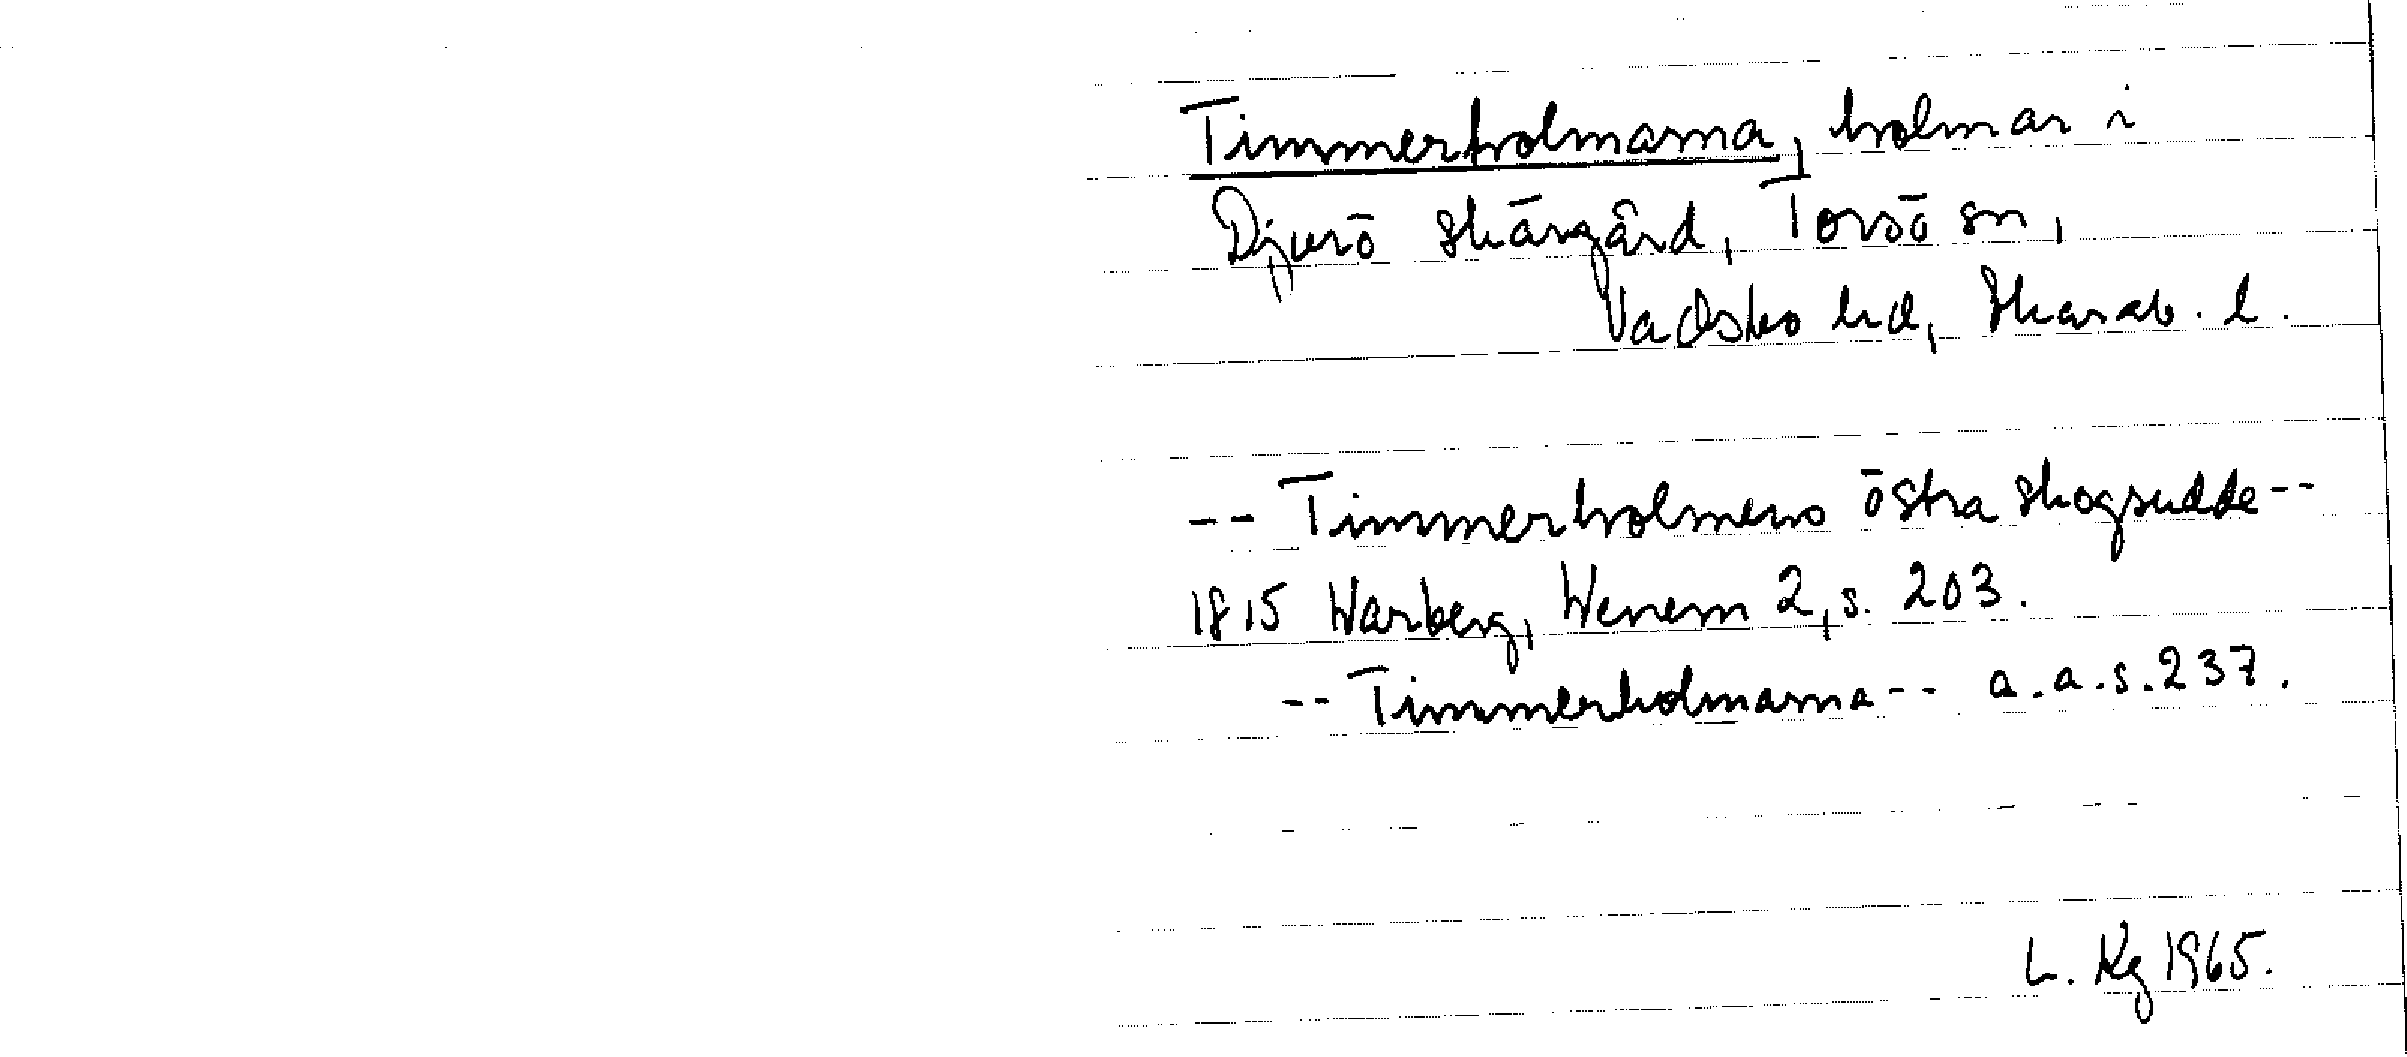 Timmerholmarna, holmar i
Djurö skärgård, Torsö sn,
Vadsbo hd, Skarab. l.
-- Timmerholmens östra skogsudde --
1815 Warberg, Wenern 2, s. 203.
-- Timmerholmarna -- a.a.s. 237.
L. Kg 1965.